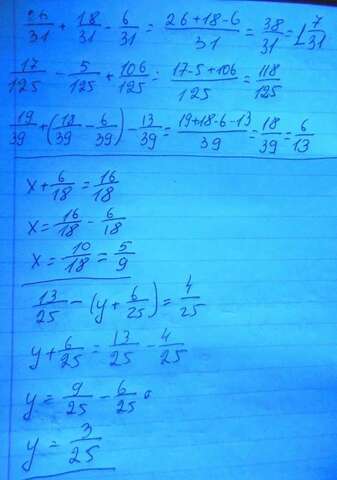 26/31 + 18/31 - 6/31 = (26+18-6)/31 = 38/31 = 1 7/31
17/125 - 5/125 + 106/125 = (17-5+106)/125 = 118/125
19/39 + (18/39 - 6/39) - 13/39 = (19+18-6-13)/39 = 18/39 = 6/13
x + 6/18 = 16/18
x = 16/18 - 6/18
x = 10/18 = 5/9
13/25 - (y + 6/25) = 4/25
y + 6/25 = 13/25 - 4/25
y = 9/25 - 6/25
y = 3/25